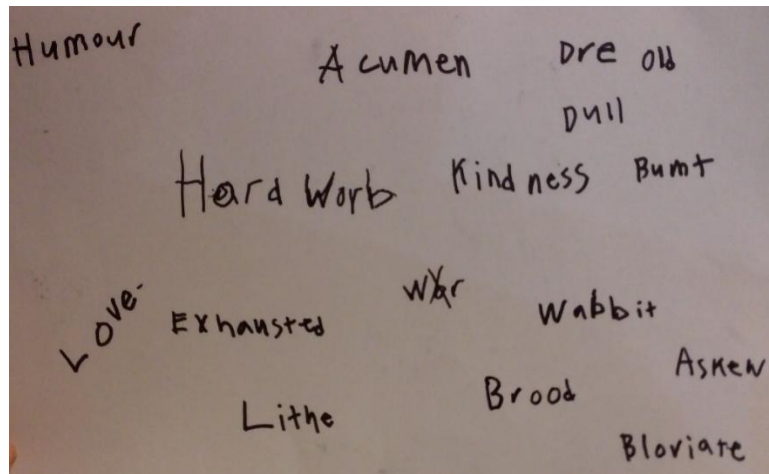 Humour
Acumen
Dre old
Dull
Hard Worb
Kindness
Bumt
Love.
Exhausted
War
Wabbit
Askew
Brood
Lithe
Bloviate